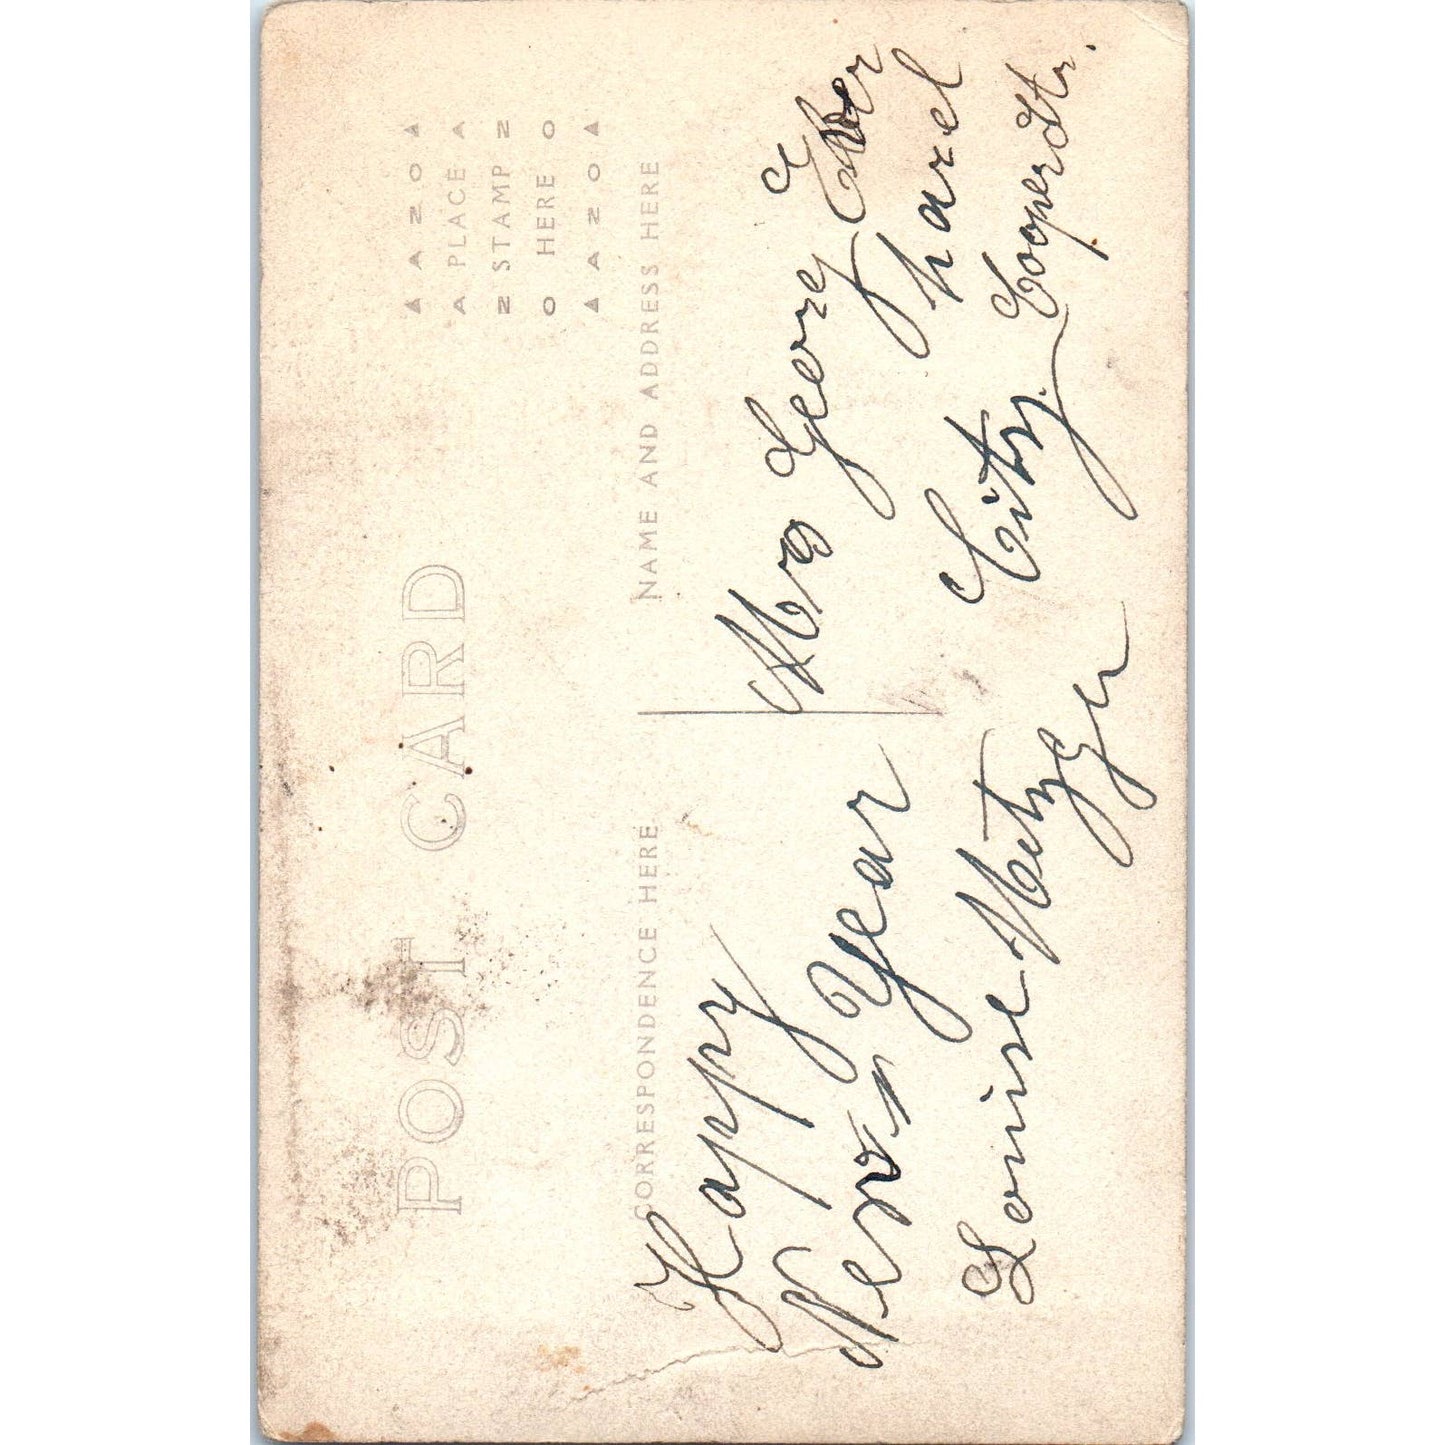 POST CARD
AZO
A PLACE A
Z STAMP Z
O HERE O
AZO
CORRESPONDENCE HERE
NAME AND ADDRESS HERE
Happy
New Year
Louise Metzger
Mrs George
City
Cooperstr.